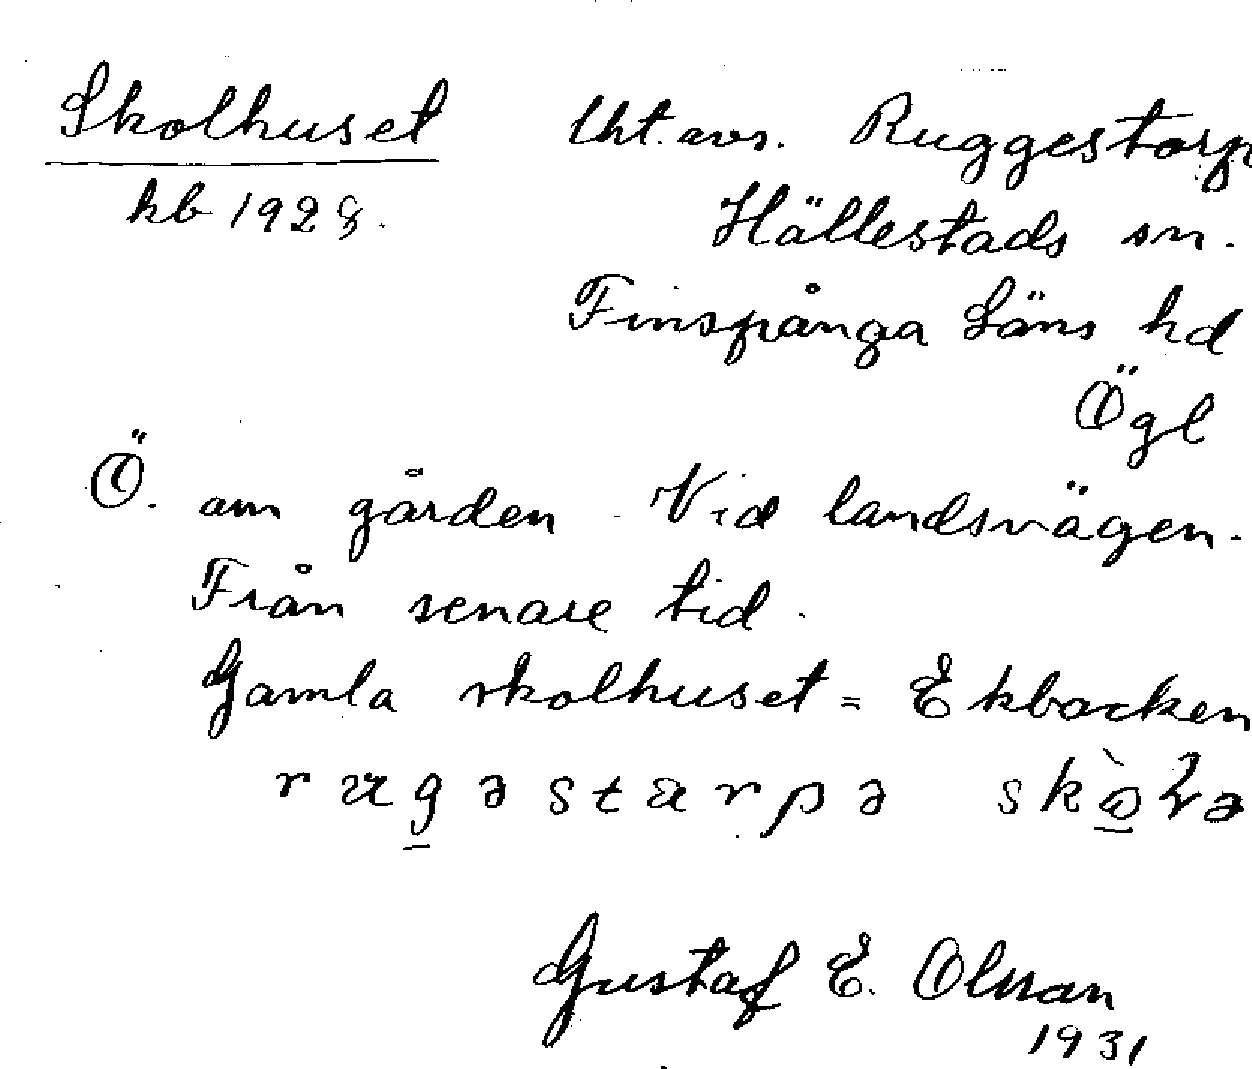 Skolhuset Uht. avs. Ruggestorp
kb 1928. Hällestads sn.
Finspånga Läns hd
Ögl
Ö. om gården. Vid landsvägen.
Från senare tid.
Gamla skolhuset = Ekbacken
Gustaf E. Olsson
1931